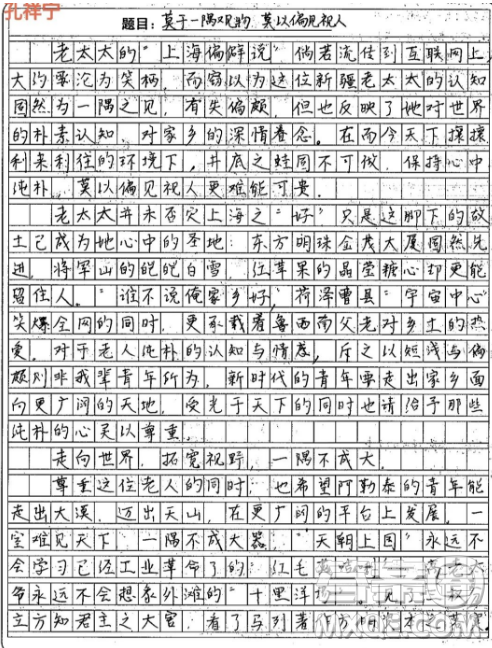 孔祥宁
题目：莫于一隅观的 莫以偏见视人
老太太的“上海偏僻说”倘若流传到互联网上，
大约要沦为笑柄，而窃以为这位新疆老太太的认知
固然为一隅之见，有失偏颇，但也反映了她对世界
的朴素认知，对家乡的深情眷念。在而今天下攘攘
利来利往的环境下，井底之蛙固不可伐，保持心中
纯朴，莫以偏见视人更难能可贵。
老太太并未否定上海之“好”只是这脚下的故
土已成为她心中的圣地：东方明珠金茂大厦固然先
进，将军山的皑皑白雪，红苹果的晶莹糖心却更能
留住人。“谁不说俺家乡好”，菏泽曹县“宇宙中心”
笑爆全网的同时，更承载着鲁西南父老对乡土的热
爱。对于老人纯朴的认知与情感，斥之以短浅与偏
颇则非我辈青年所为，新时代的青年要走出家乡面
向更广阔的天地，受光于天下的同时也请给予那些
纯朴的心灵以尊重。
走向世界，拓宽视野，一隅不成大。
尊重这位老人的同时，也希望阿勒泰的青年能
走出大漠，迈出天山，在更广阔的平台上发展，一
室难见天下，一隅不成大器。“天朝上国”永远不
会学习已经工业革命了的“红毛
爷永远不会想象外滩的“十里洋 见了
立方知君主之大害；看了马列著作方明资本之